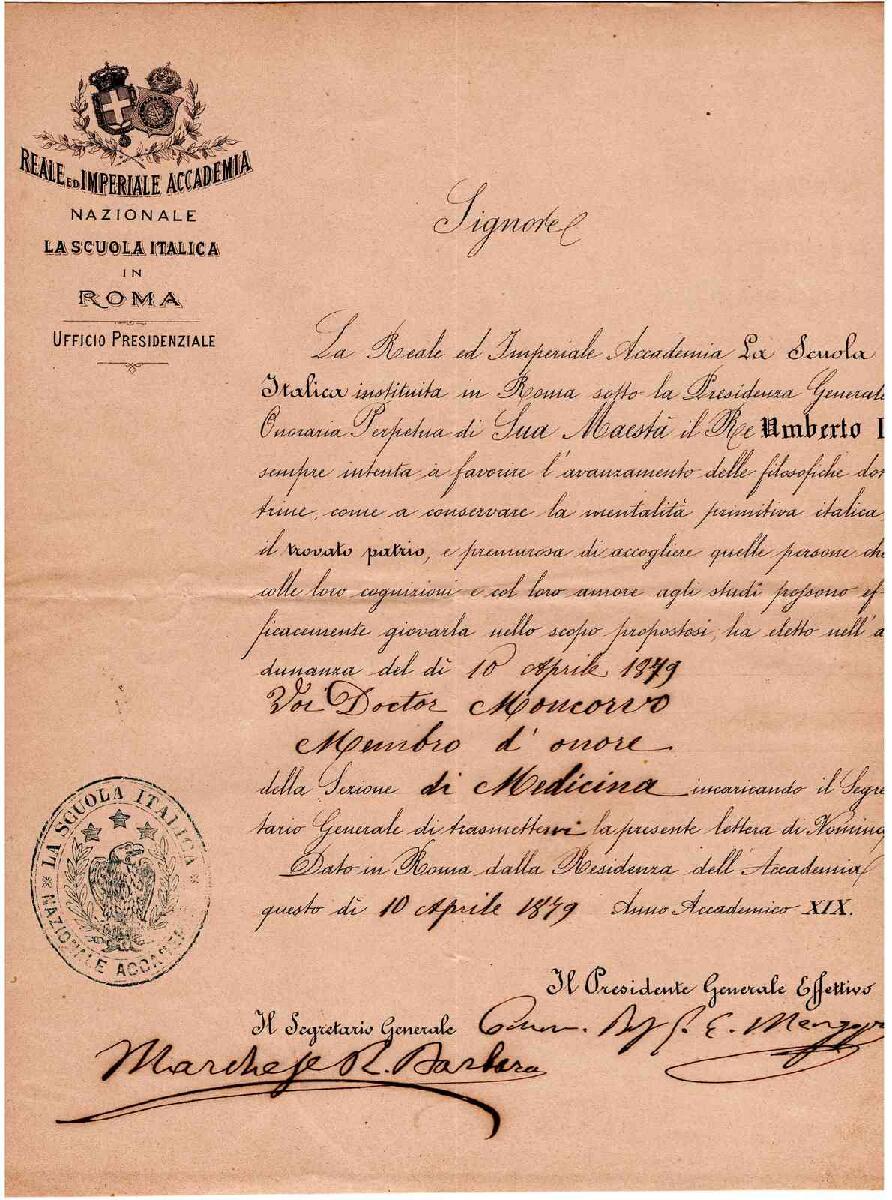 REALE ED IMPERIALE ACCADEMIA
NAZIONALE
LA SCUOLA ITALICA
IN
ROMA
UFFICIO PRESIDENZIALE
Signore
La Reale ed Imperiale Accademia La Scuola
Italica instituita in Roma sotto la Presidenza Generale
Onoraria Perpetua di Sua Maestà il Re Umberto I
sempre intenta a favorire l'avanzamento delle filosofiche dot
trine, come a conservare la mentalità primitiva italica,
il trovato patrio, e premurosa di accogliere quelle persone che
colle loro cognizioni e col loro amore agli studi possono ef
ficacemente giovarla nello scopo propostosi, ha eletto nell'a
dunanza del dì 10 Aprile 1879
Voi Doctor Moncorvo
Membro d'onore
della Sezione di Medicina incaricando il Segre
tario Generale di trasmettervi la presente lettera di Nomina
Dato in Roma dalla Residenza dell'Accademia
questo dì 10 Aprile 1879 Anno Accademico XIX.
LA SCUOLA ITALICA
NAZIONALE ACCADEMIA
Il Presidente Generale Effettivo
Il Segretario Generale
Marchese R. Barbera